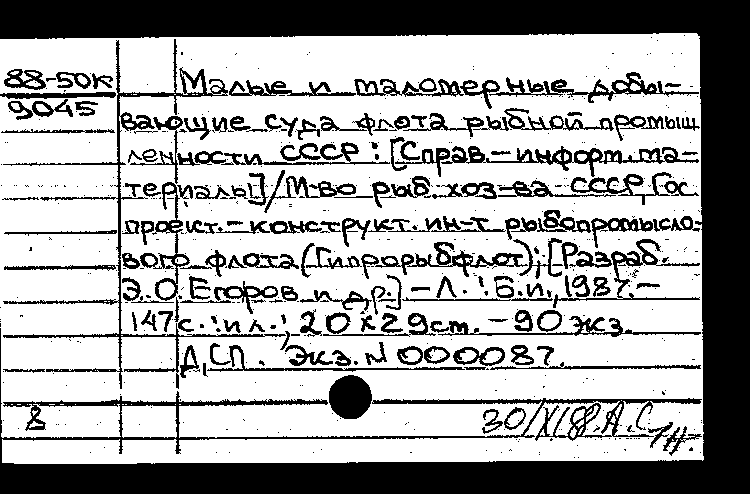 88-50к
9045
Малые и маломерные добы-
вающие суда флота рыбной промыш
ленности СССР : [Справ.-информ. ма-
териалы]/М-во рыб. хоз-ва СССР, Гос.
проект.-конструкт. ин-т рыбопромысло-
вого флота (Гипрорыбфлот); [Разраб.
Э. О. Егоров и др.] - Л. : Б.и., 1987. -
147 с. : ил. ; 20 х 29 см. - 90 экз.
ДСП. Экз. N 000087.
8
30/XI 88. А. С.